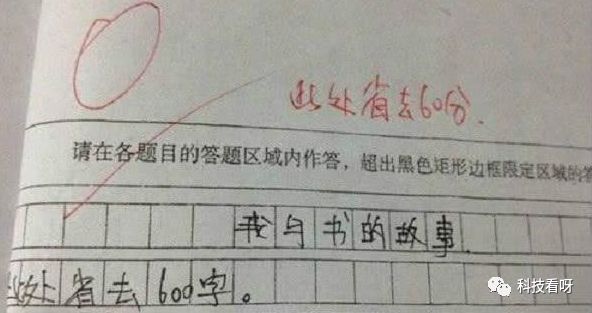 此处省去60分.
请在各题目的答题区域内作答，超出黑色矩形边框限定区域的答
我与书的故事
此处省去600字。
科技看呀